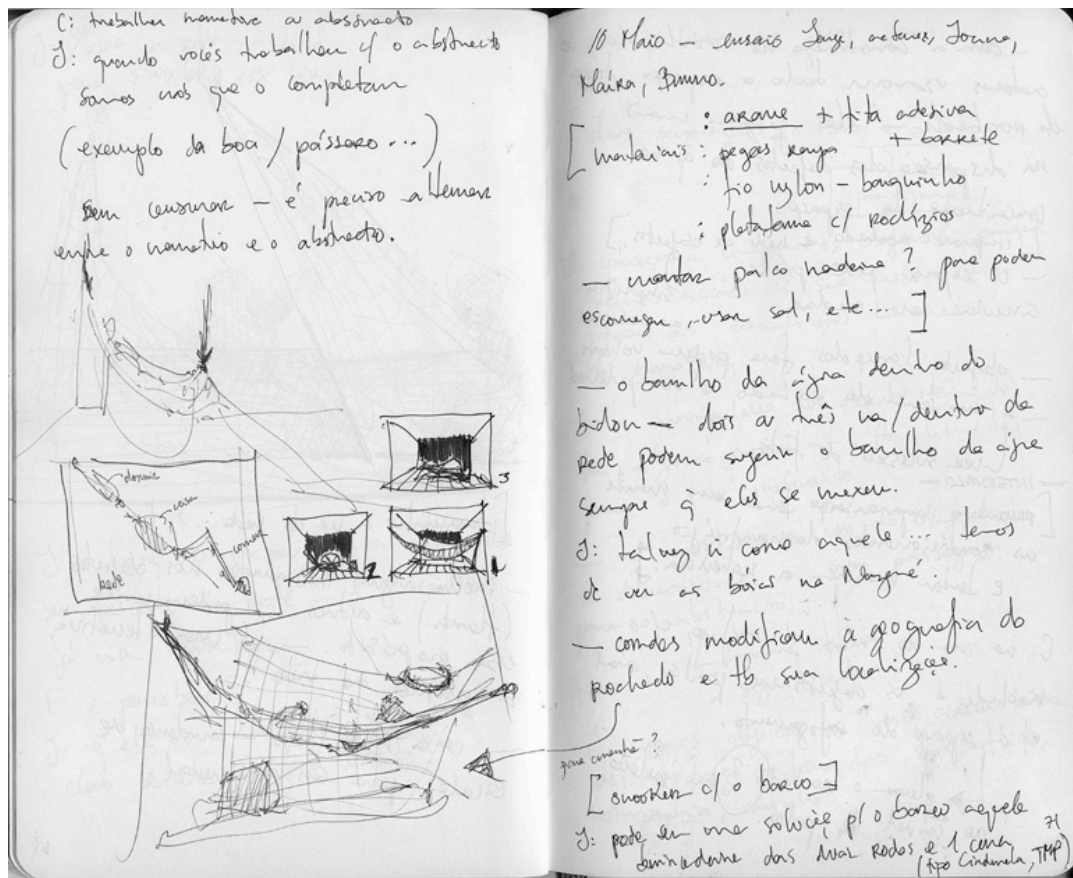 C: trabalhar narrativa ou abstracto
J: quando vocês trabalham c/ o abstracto
somos nós que o completam
(exemplo da boa / pássaro...)
Sem censurar – é preciso alternar
entre o narrativo e o abstracto.
dormir
casa
comer
rede
3
2
1
10 Maio — ensaio Jorge, actores, Joana,
Maíra, Bruno.
[materiais : arame + fita adesiva
: peças + barrete
: fio nylon – banquinho
: plataforma c/ rodízios
— montar palco madeira? para poder
escorregar, usar sal, etc... ]
— o barulho da água dentro do
bidon — dois ou três na/dentro da
rede podem sugerir o barulho da água
sempre q eles se mexem.
J: talvez é como aquele ... temos
de ver as bóias na Nazaré
— cordas modificam a geografia do
rochedo e tb sua localização.
para amanhã?
[ c/ o barco]
J: pode ser uma solução p/ o barco aquele
das duas rodas e 1 cena
(tipo Cinderela, TMP)
71